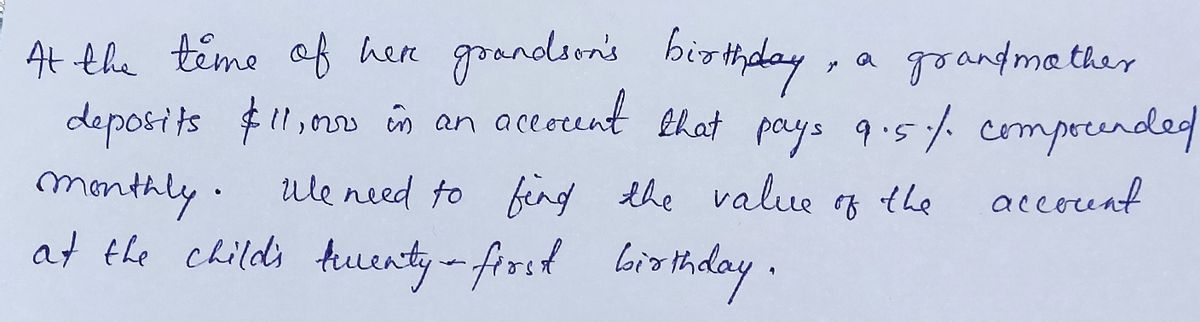 At the time of her grandson's birthday, a grandmother
deposits $11,000 in an account that pays 9.5% compounded
monthly. We need to find the value of the account
at the child's twenty-first birthday.